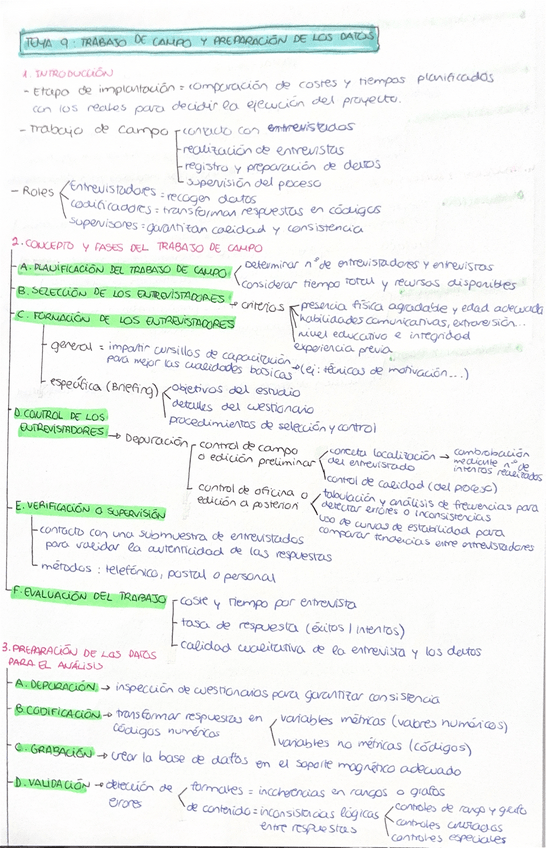 TEMA 9: TRABAJO DE CAMPO Y PREPARACIÓN DE LOS DATOS
1. INTRODUCCIÓN
- Etapa de implantación = comparación de costes y tiempos planificados
con los reales para decidir la ejecución del proyecto.
- Trabajo de campo
contacto con entrevistados
realización de entrevistas
registro y preparación de datos
supervisión del poceso
- Roles
Entrevistadores = recogen datos
codificadores = transforman respuestas en códigos
supervisores = garantizan calidad y consistencia
2. CONCEPTO Y FASES DEL TRABAJO DE CAMPO
A. PLANIFICACIÓN DEL TRABAJO DE CAMPO
determinar nº de entrevistadores y entrevistas
considerar tiempo total y recursos disponibles
B. SELECCIÓN DE LOS ENTREVISTADORES → criterios
presencia física agradable y edad adecuada
habilidades comunicativas, extroversión...
nivel educativo e integridad
experiencia previa
C. FORMACIÓN DE LOS ENTREVISTADORES
general = impartir cursillos de capacitación
para mejorar las cualidades básicas → (ej: técnicas de motivación...)
específica (Briefing)
objetivos del estudio
detalles del cuestionario
procedimientos de selección y control
D. CONTROL DE LOS
ENTREVISTADORES → Depuración
control de campo
o edición preliminar
correcta localización
del entrevistado
→ comprobación
mediante nº de
intentos realizados
control de calidad (del poceso)
control de oficina o
edición a posteriori
tabulación y análisis de frecuencias para
detectar errores o inconsistencias
uso de curvas de estabilidad para
comparar tendencias entre entrevistadores
E. VERIFICACIÓN O SUPERVISIÓN
contacto con una submuestra de entrevistados
para validar la autenticidad de las respuestas
métodos: telefónico, postal o personal
F. EVALUACIÓN DEL TRABAJO
coste y tiempo por entrevista
tasa de respuesta (éxitos / intentos)
calidad cualitativa de la entrevista y los datos
3. PREPARACIÓN DE LOS DATOS
PARA EL ANÁLISIS
A. DEPURACIÓN → inspección de cuestionarios para garantizar consistencia
B. CODIFICACIÓN → transformar respuestas en
códigos numéricos
variables métricas (valores numéricos)
variables no métricas (códigos)
C. GRABACIÓN → crear la base de datos en el soporte magnético adecuado
D. VALIDACIÓN → detección de
errores
formales = incoherencias en rangos o grafos
de contenido = inconsistencias lógicas
entre respuestas
controles de rango y grafo
controles cruzados
controles especiales